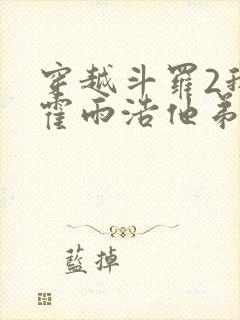 穿越斗羅2我
霍雨浩他弟
藍掉